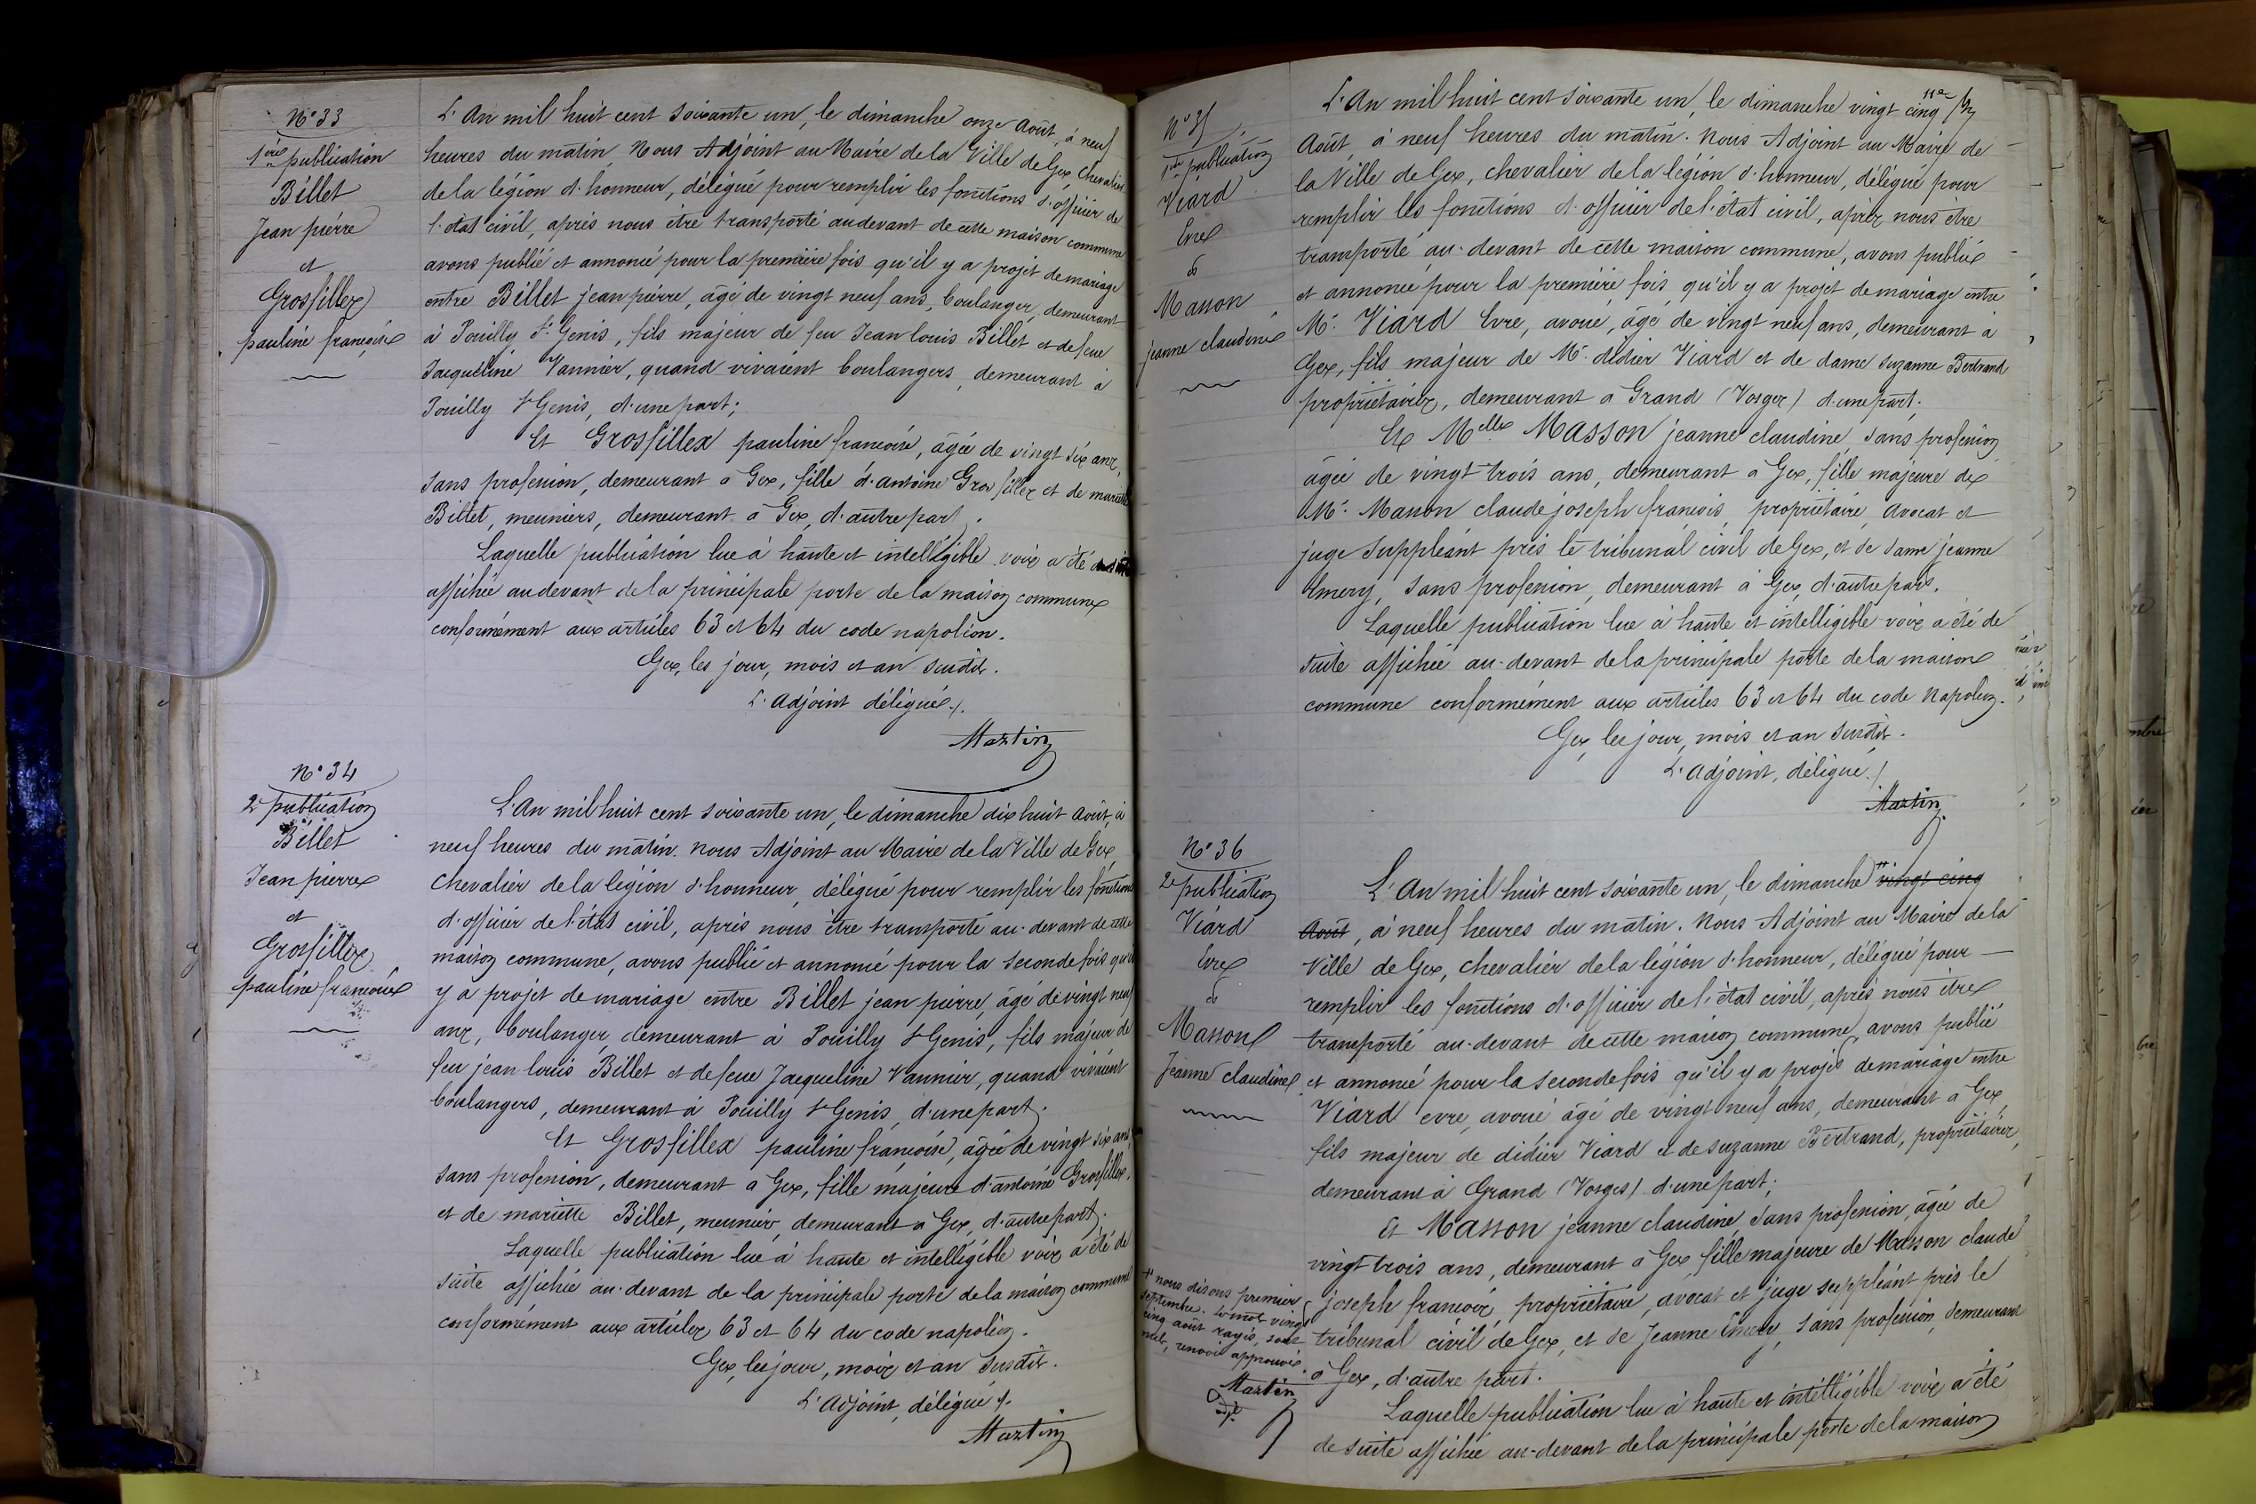 N° 33
1ère publication
Billet
Jean pierre
et
Grosfillex
pauline françoise
L'An mil huit cent soixante un, le dimanche onze Août, à neuf
heures du matin, Nous Adjoint au Maire de la Ville de Gex, Chevalier
de la légion d'honneur, délégué pour remplir les fonctions d'officier de
l'état civil, après nous être transporté audevant de cette maison commune
avons publié et annoncé pour la première fois qu'il y a projet de mariage
entre Billet jean pierre, âgé de vingt neuf ans, boulanger, demeurant
à Pouilly St Genis, fils majeur de feu Jean louis Billet et de feue
Jacqueline Vannier, quand vivaient boulangers, demeurant à
Pouilly St Genis, d'une part;
Et Grosfillex pauline francoise, âgée de vingt six ans,
sans profession, demeurant à Gex, fille d'antoine Grosfillex et de mariette
Billet, meuniers, demeurant à Gex, d'autre part.
Laquelle publication lue à haute et intelligible voix a été
affichée audevant de la principale porte de la maison commune
conformément aux articles 63 et 64 du code napoléon.
Gex, les jour, mois et an susdit.
L'Adjoint délégué /.
Martin
N° 34
2e publication
Billet
Jean pierre
et
Grosfillex
pauline francoise
L'An mil huit cent soixante un, le dimanche dix huit Août, à
neuf heures du matin. Nous Adjoint au Maire de la Ville de Gex,
Chevalier de la légion d'honneur, délégué pour remplir les fonctions
d'officier de l'état civil, après nous être transporté au-devant de cette
maison commune, avons publié et annoncé pour la seconde fois qu'il
y a projet de mariage entre Billet jean pierre, âgé de vingt neuf
ans, boulanger, demeurant à Pouilly St Genis, fils majeur de
feu jean louis Billet et de feue Jacqueline Vannier, quand vivaient
boulangers, demeurant à Pouilly St Genis, d'une part.
Et Grosfillex pauline françoise, âgée de vingt six ans,
sans profession, demeurant a Gex, fille majeure d'antoine Grosfillex,
et de mariette Billet, meunier, demeurant à Gex, d'autre part.
Laquelle publication lue à haute et intelligible voix a été de
suite affichée au-devant de la principale porte de la maison commune
conformément aux articles 63 et 64 du code napoléon.
Gex, les jour, mois et an susdit.
L'Adjoint, délégué /.
Martin
N° 35
1ère publication
Viard
Evre
&
Masson
jeanne claudine
L'An mil huit cent soixante un, le dimanche vingt cinq
Août, à neuf heures du matin. Nous Adjoint au Maire de
la Ville de Gex, chevalier de la légion d'honneur, délégué pour
remplir les fonctions d'officier de l'état civil, après nous être
transporté au-devant de cette maison commune, avons publié
et annoncé pour la première fois qu'il y a projet de mariage entre
Mr. Viard Evre, avoué, âgé de vingt neuf ans, demeurant à
Gex, fils majeur de Mr. didier Viard et de dame Suzanne Bertrand
propriétaires, demeurant à Grand (Vosges) d'une part.
Et Melle Masson jeanne claudine, sans profession
âgée de vingt trois ans, demeurant à Gex, fille majeure de
Mr. Masson claude joseph francois, propriétaire, avocat et
juge suppléant près le tribunal civil de Gex, et de dame jeanne
Emery, sans profession, demeurant à Gex, d'autre part.
Laquelle publication lue à haute et intelligible voix a été de
suite affichée au-devant de la principale porte de la maison
commune conformément aux articles 63 et 64 du code Napoléon.
Gex, les jour, mois et an susdit.
L'Adjoint, délégué /
Martin
N° 36
2e publication
Viard
Evre
&
Masson
Jeanne claudine
L'An mil huit cent soixante un, le dimanche vingt cinq
Août, à neuf heures du matin. Nous Adjoint au Maire de la
Ville de Gex, chevalier de la légion d'honneur, délégué pour
remplir les fonctions d'officier de l'état civil, après nous être
transporté au-devant de cette maison commune, avons publié
et annoncé pour la seconde fois qu'il y a projet de mariage entre
Viard evre, avoué âgé de vingt neuf ans, demeurant à Gex,
fils majeur de didier Viard et de suzanne Bertrand, propriétaires,
demeurant à Grand (Vosges) d'une part;
Et Masson jeanne claudine, sans profession, âgée de
vingt trois ans, demeurant à Gex fille majeure de Masson claude
joseph françois, propriétaire, avocat et juge suppléant près le
tribunal civil de Gex, et de Jeanne Emery, sans profession, demeurant
à Gex, d'autre part.
Laquelle publication lue à haute et intelligible voix a été
de suite affichée au-devant de la principale porte de la maison
nous disons premier
septembre. le mot vingt
cinq août rayés, sont
nuls, renvoi approuvé.
Martin
adjt